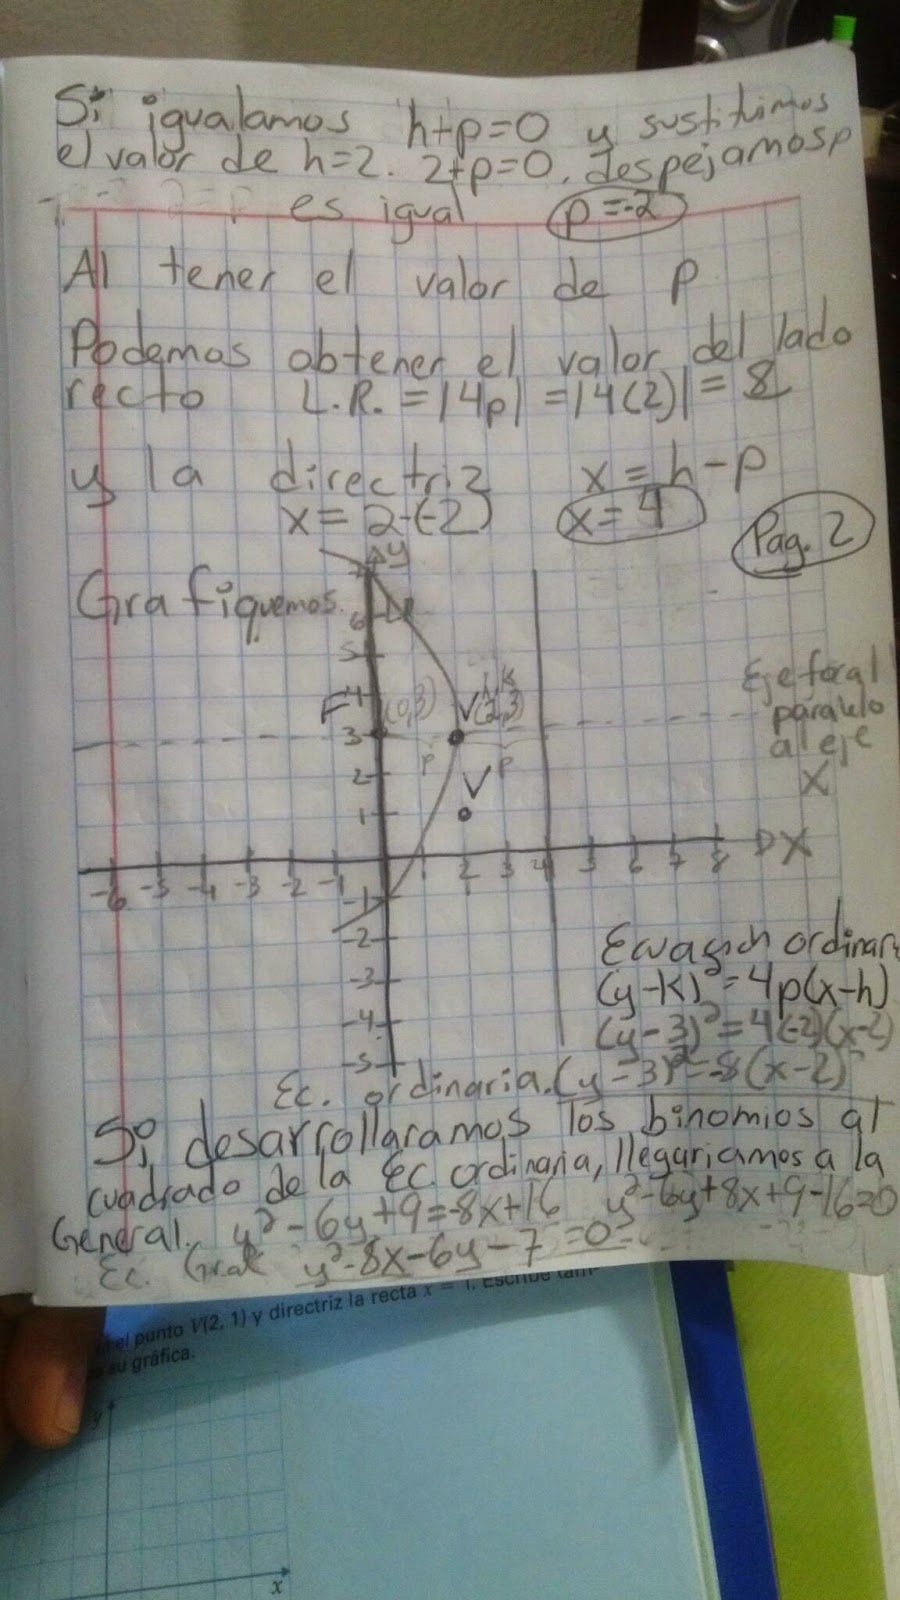 Si igualamos h+p=0 y sustituimos
el valor de h=2. 2+p=0. despejamos p
es igual p=-2
Al tener el valor de p
Podemos obtener el valor del lado
recto L.R. = |4p| = |4(2)| = 8
y la directriz x = h-p
x = 2-(-2) x = 4
Pag. 2
Grafiquemos.
y
7
6
5
4
3
2
1
F (0,3)
h,k
V(2,3)
p p
V
Eje focal
paralelo
al eje
X
-6 -5 -4 -3 -2 -1 1 2 3 4 5 6 7 8 X
-1
-2
-3
-4
-5
Ecuación ordinari
(y-k)²=4p(x-h)
(y-3)²=4(-2)(x-2)
Ec. ordinaria. (y-3)²=-8(x-2)
Si desarrollaramos los binomios al
cuadrado de la Ec. ordinaria, llegariamos a la
General. y²-6y+9=-8x+16 y²-6y+8x+9-16=0
Ec. Gral y²-8x-6y-7=0
el punto V(2, 1) y directriz la recta x = 1. Escribe tam-
su gráfica.
y
x